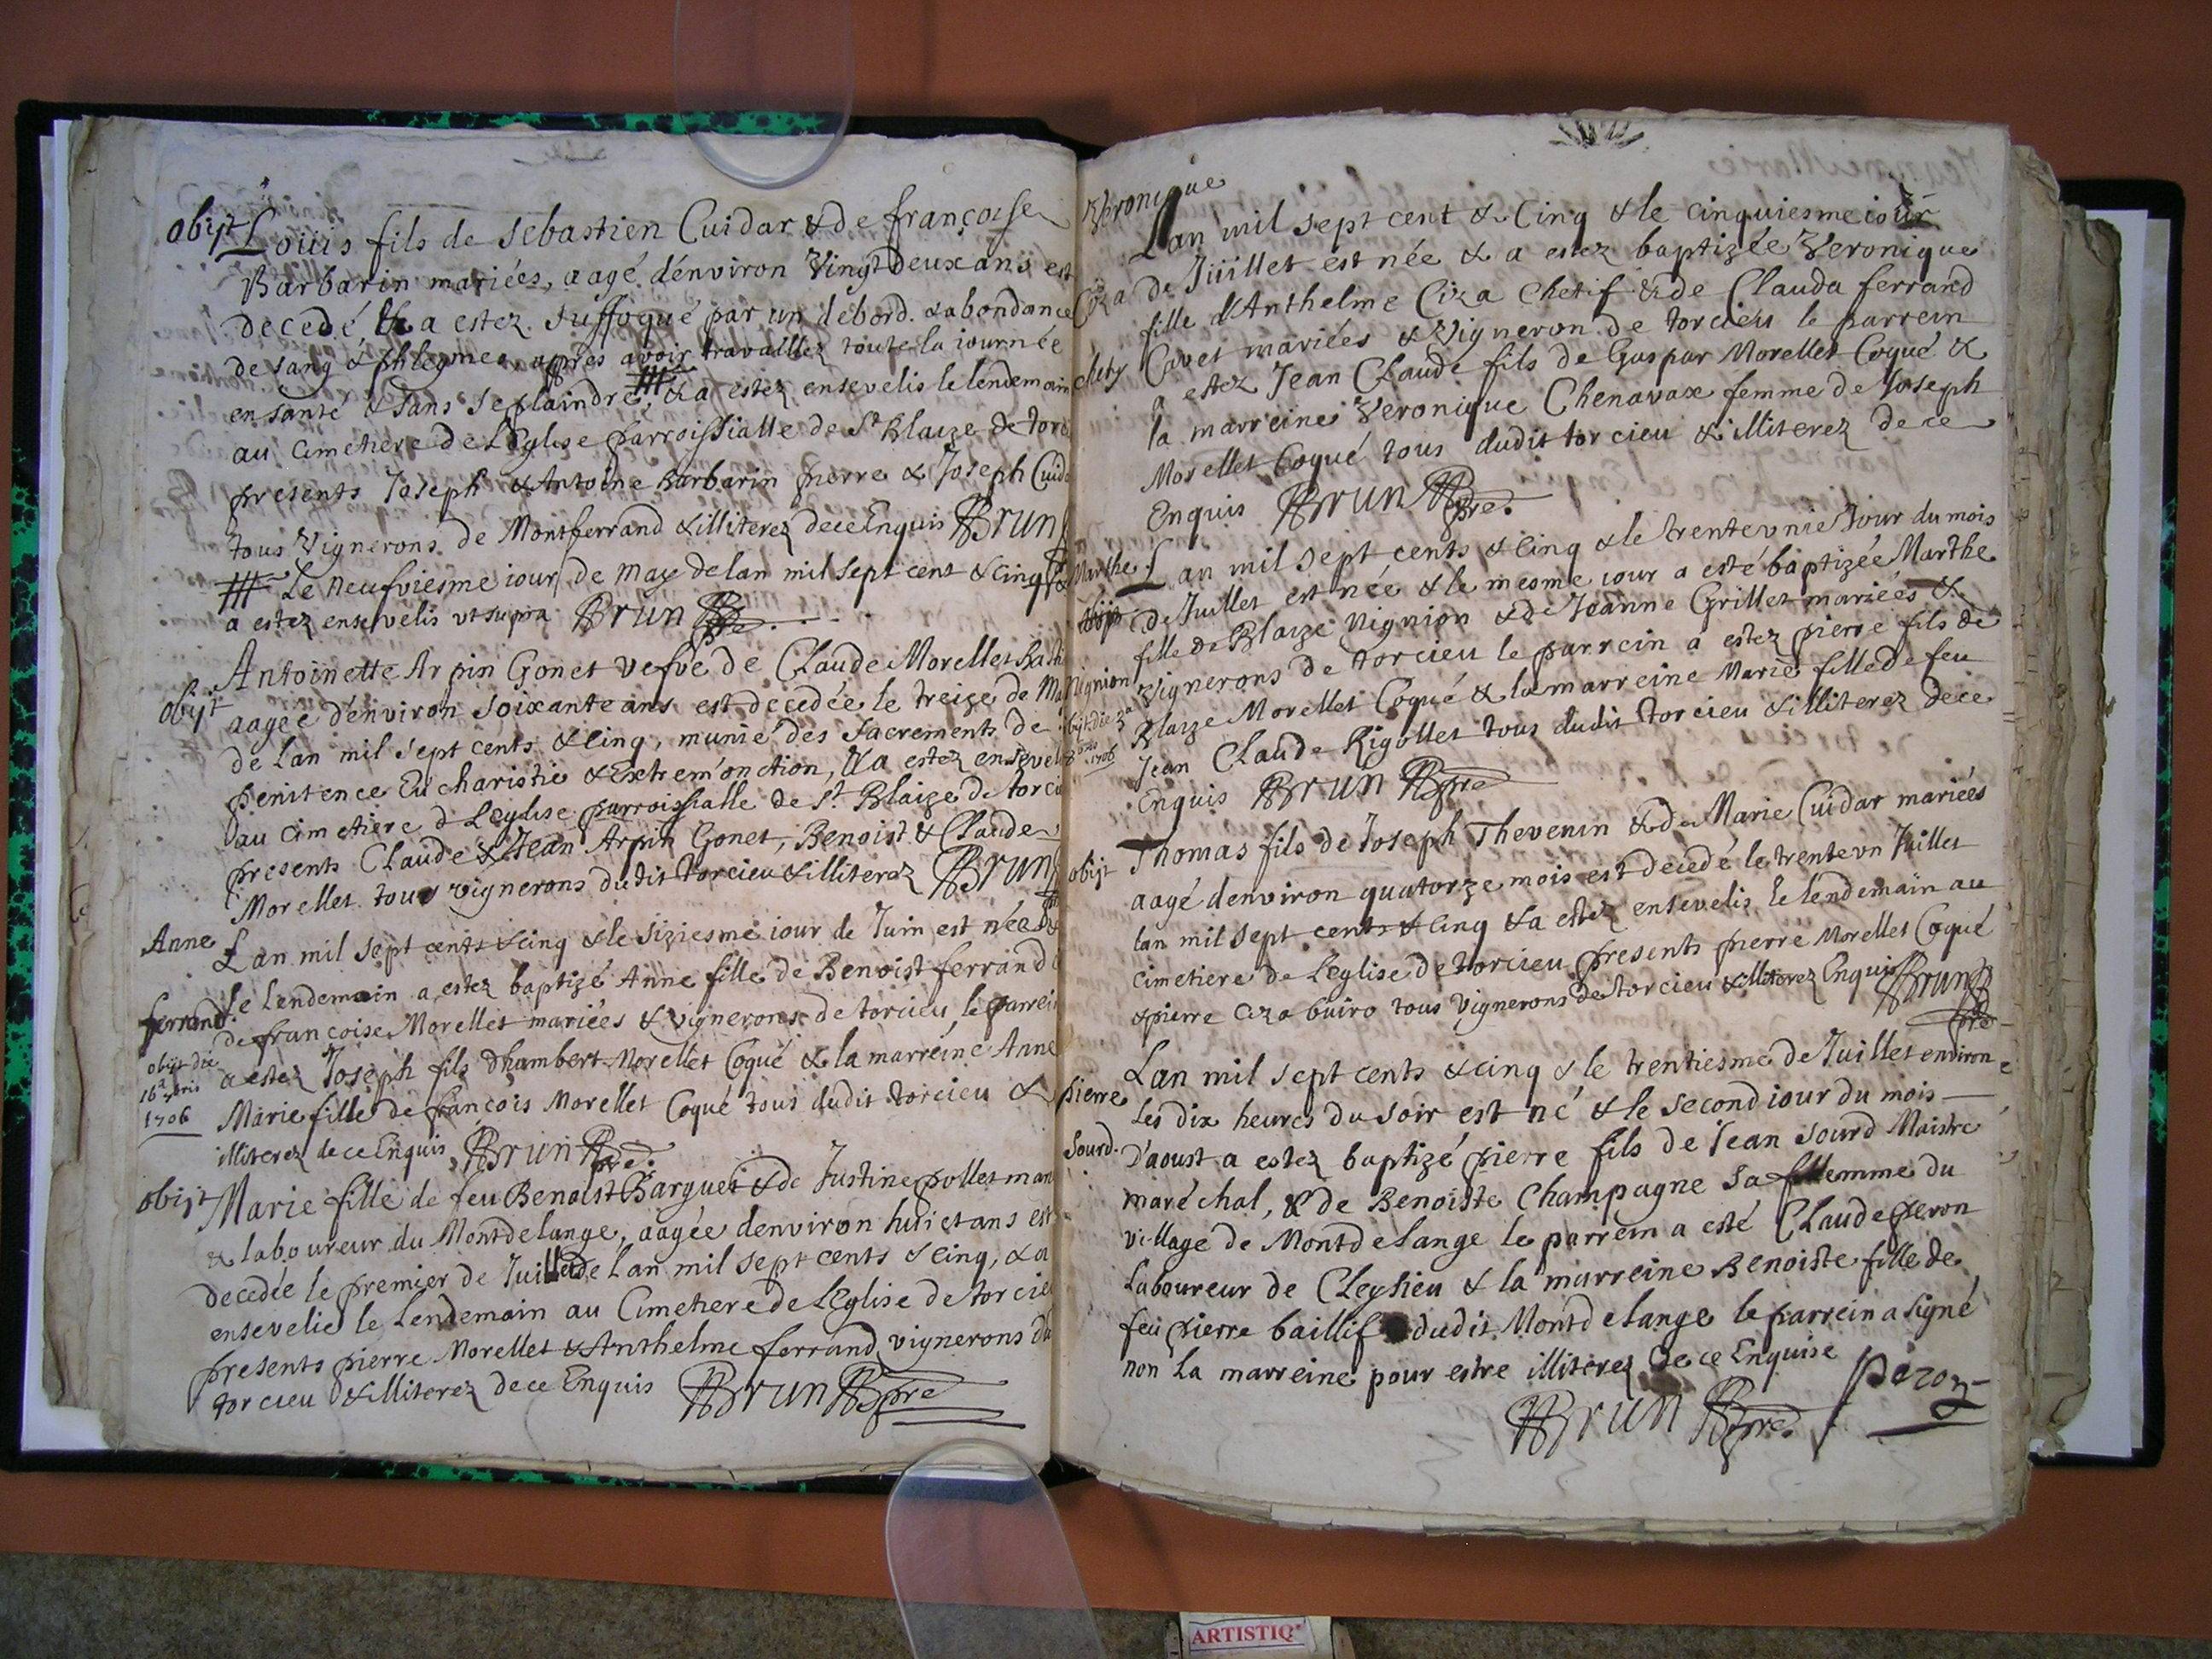 obijt Loüis fils de Sebastien Cuidar & de françoise
Barbarin mariées, aagé d'environ Vingt deux ans est
decedé & a estez suffoqué par un debord. & abondance
de sang & phlegmes apprés avoir travaillez toute la iournée
en santé & sans se plaindre, & a estez ensevelis le lendemain
au Cimetiere de L'Eglise parroissialle de St Blaize de torc
presents Joseph & Antoine Barbarin pierre & Joseph Cuida
tous Vignerons de Montferrand & illiterez de ce Enquis Brun
Le neufviesme iour de may de lan mil sept cent & cinq &
a estez ensevelis vt supra Brun pre
Antoinette Arpin Gonet vefve de Claude Morellet
obijt aagée d'environ soixante ans est decedée le treize de Ma
de lan mil sept cents & cinq, munie des sacrements de
penitence Eucharistie & Extrem'onction, & a estez ensevel
au cimetiere d L'eglise parroissialle de St Blaize de torcie
presents Claude & Jean Arpin Gonet, Benoist & Claude
Morellet tous vignerons dudit torcieu & illiterez Brun
Anne Lan mil sept cents & cinq & le siziesme iour de Juin est née &
ferrand. le lendemain a estez baptizé Anne fille de Benoist ferrand &
de francoise Morellet mariées & vignerons de torcieu, le parrein
obijt die
16a 7bris
1706
a estez Joseph fils d'humbert Morellet Coqué & la marreine Anne
Marie fille de francois Morellet Coqué tous dudit torcieu &
illiterez de ce Enquis Brun pre.
obijt Marie fille de feu Benoist Barguet & de Justine pollet mari
& laboureur du Montdelange, aagée denviron huict ans est
decedée le premier de Juillet de lan mil sept cents & cinq, & a
ensevelie le lendemain au Cimetiere de L'Eglise de torcieu
presents pierre Morellet & Anthelme ferrand vignerons du
torcieu & illiterez de ce Enquis Brun pre
Veronique
Lan mil sept cent & Cinq & le cinquiesme iour
Ciza de Jüillet est née & a estez baptizée Veronique
fille d'Anthelme Ciza Chetif & de Clauda ferrand
chety Covet mariées & Vigneron de torcieu le parrein
a estez Jean Claude fils de Gaspar Morellet Coqué &
la marreine Veronique Chenavax femme de Joseph
Morellet Coqué tous dudit torcieu & illiterez de ce
Enquis Brun pre.
Marthe Lan mil sept cents & cinq & le trentevnie. Jour du mois
obijt de Juillet est née & le mesme iour a esté baptizée Marthe
fille de Blaize Nignion & de Jeanne Grillet mariées &
Nignion Vignerons de torcieu le parrein a estez pierre fils de
obijt die 3a
8bris 1706
Blaize Morellet Coqué & la marreine Marie fille de feu
Jean Claude Rigollet tous dudit torcieu & illiterez de ce
Enquis Brun pre
Thomas fils de Joseph Thevenin & de Marie Cuidar mariées
obijt aagé denviron quatorze mois est decedé le trentevn Juillet
lan mil sept cents & cinq & a estez ensevelis le lendemain au
cimetiere de Leglise de torcieu presents pierre Morellet Coqué
& pierre Ciza buiro tous Vignerons de torcieu & illiterez Enquis Brun
pre
Lan mil sept cents & cinq & le trentiesme de Juillet environ
pierre les dix heures du soir est né & le second iour du mois
Sourd. D'aoust a estez baptizé pierre fils de Jean Sourd Maistre
maréchal, & de Benoiste Champagne sa femme du
village de Montdelange le parrein a esté Claude peron
Laboureur de Cleysieu & la marreine Benoiste fille de
feu pierre baillif dudit Montdelange le parrein a signé
non la marreine pour estre illiterez de ce Enquise peron
Brun pre.
ARTISTIQ